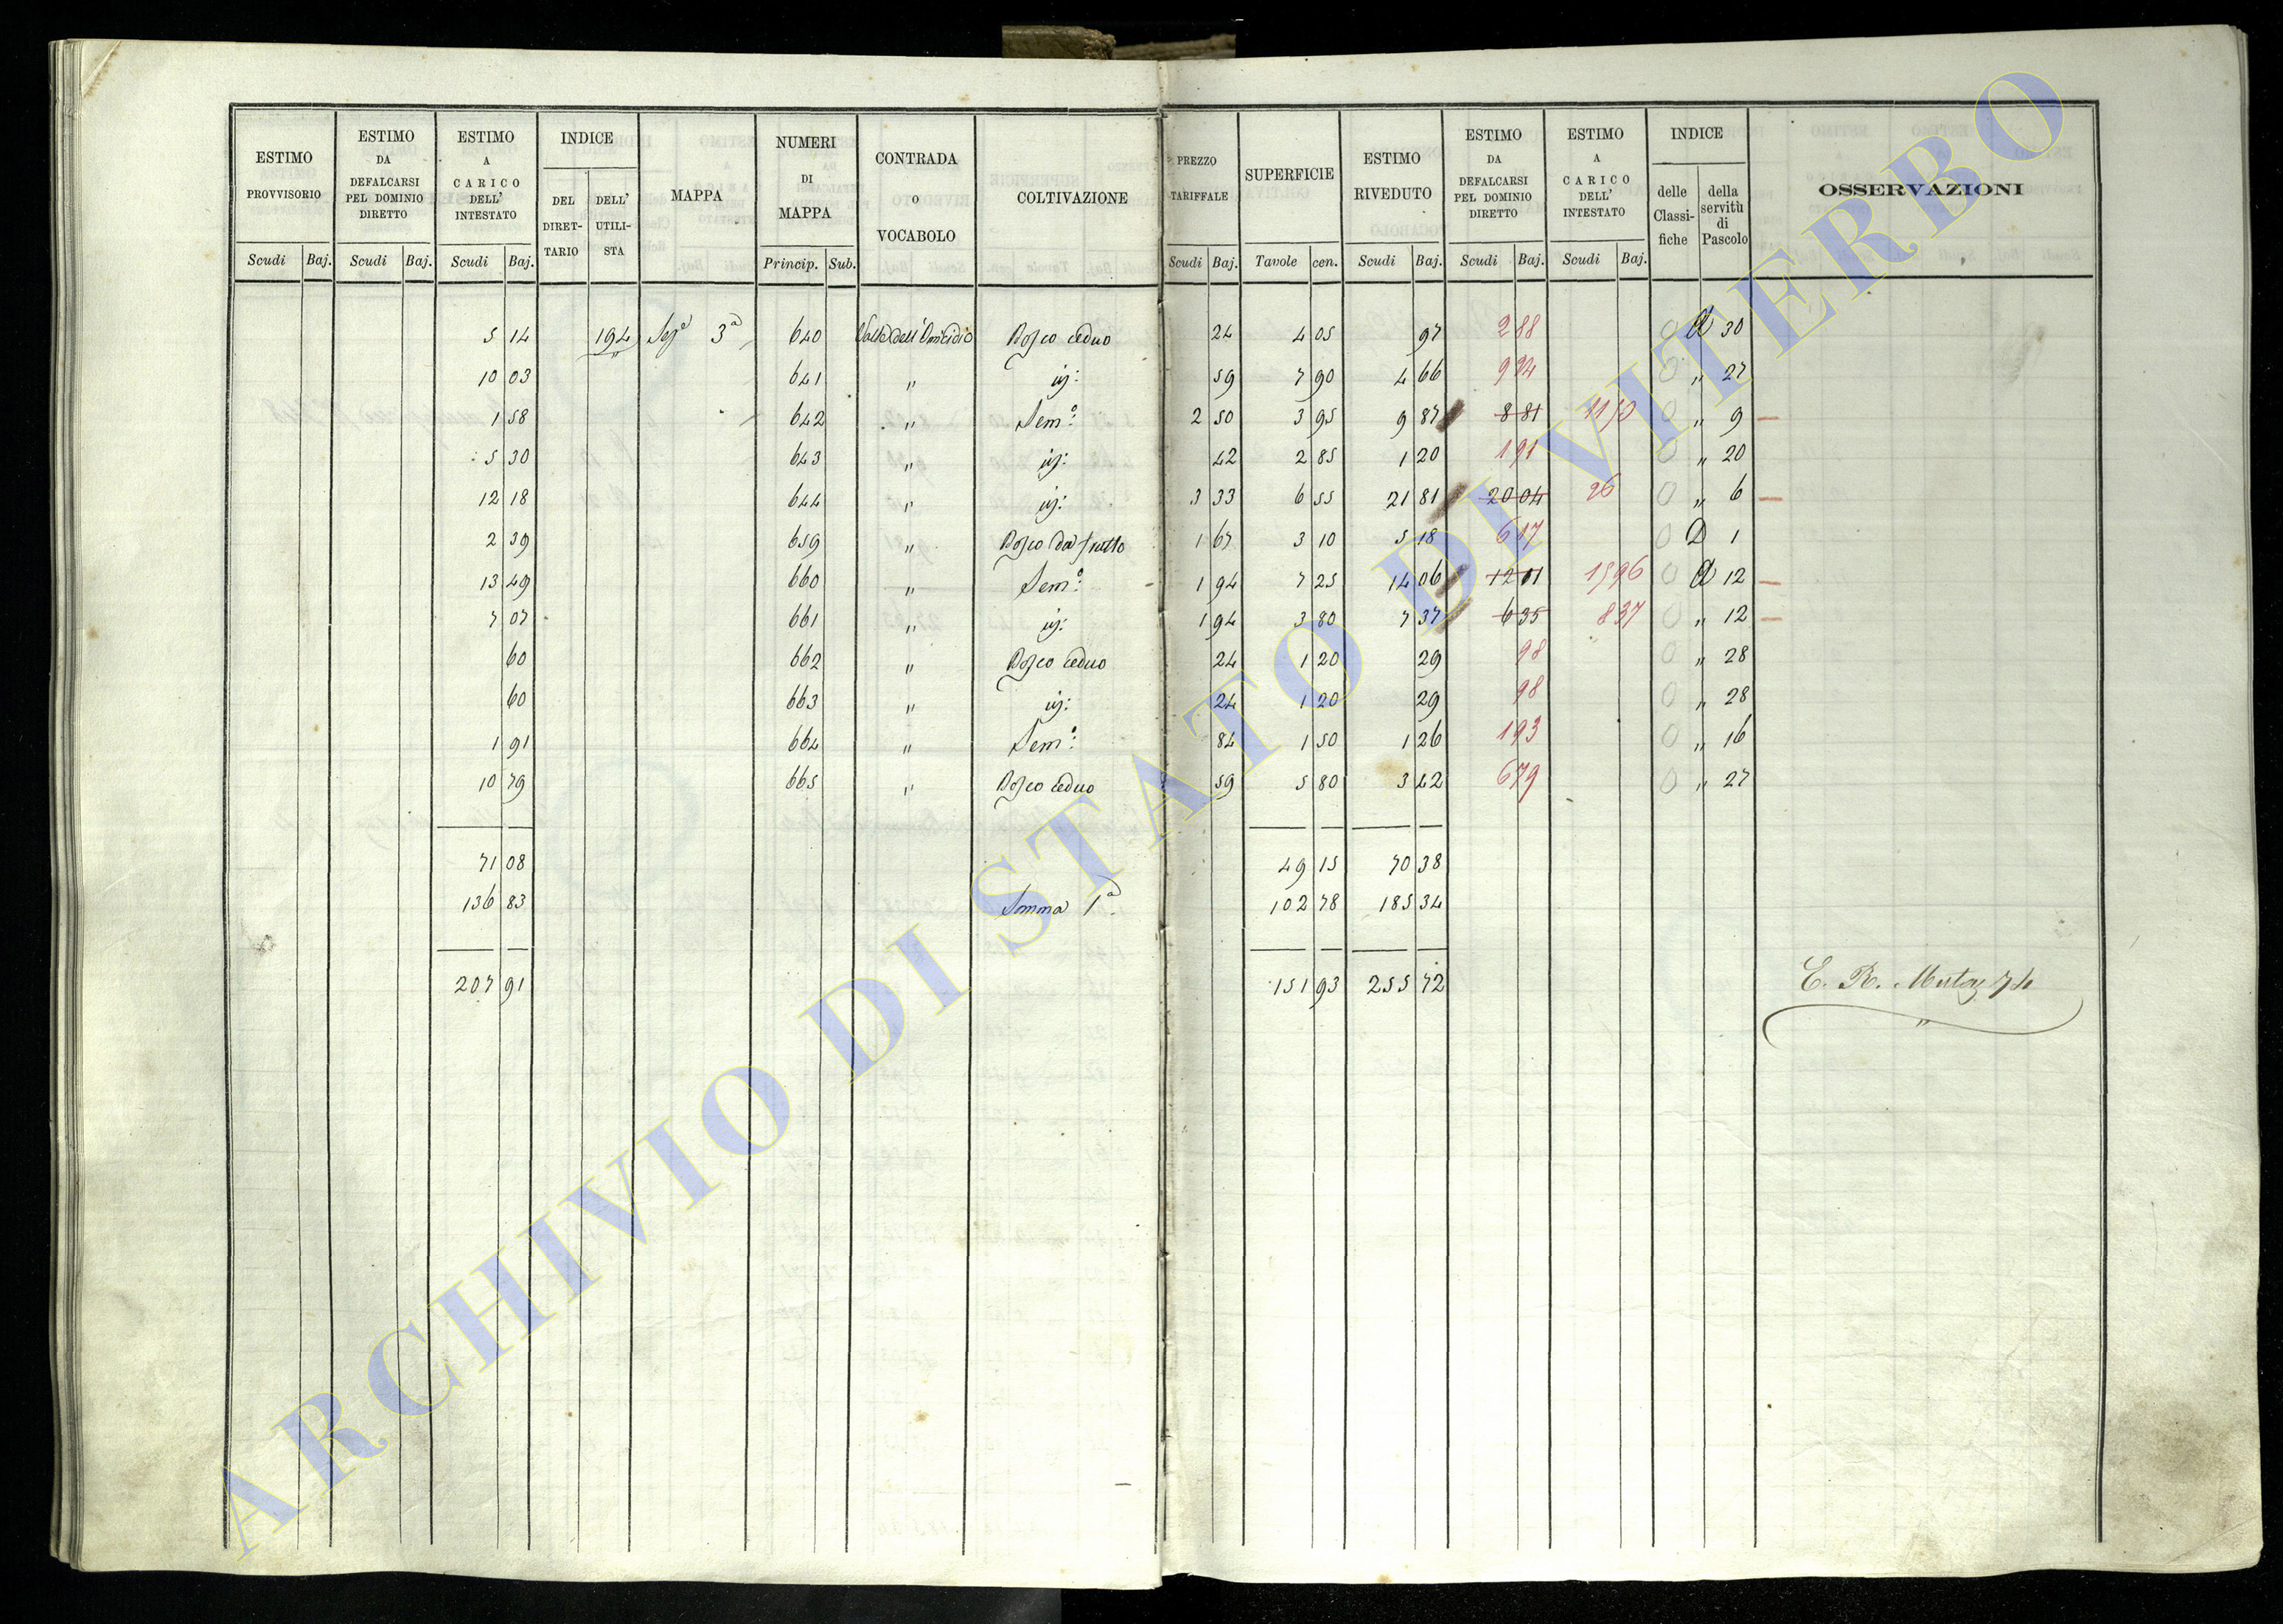 ESTIMO PROVVISORIO | ESTIMO DA DEFALCARSI PEL DOMINIO DIRETTO | ESTIMO A CARICO DELL' INTESTATO | INDICE | MAPPA | NUMERI DI MAPPA | CONTRADA o VOCABOLO | COLTIVAZIONE | PREZZO TARIFFALE | SUPERFICIE | ESTIMO RIVEDUTO | ESTIMO DA DEFALCARSI PEL DOMINIO DIRETTO | ESTIMO A CARICO DELL' INTESTATO | INDICE | OSSERVAZIONI
DEL DIRETTARIO | DELL' UTILISTA | delle Classifiche | della servitù di Pascolo
Scudi | Baj. | Scudi | Baj. | Scudi | Baj. | Princip. | Sub. | Scudi | Baj. | Tavole | cen. | Scudi | Baj. | Scudi | Baj. | Scudi | Baj.
5 14 | 194 | Sez.e 3a | 640 | Valle dell'Omicidio | Bosco ceduo | 24 | 4 05 | 97 | 2 88 | 0 | A 30
10 03 | 641 | " | id: | 59 | 7 90 | 4 66 | 9 94 | 0 | " 27
1 58 | 642 | " | Sem.o | 2 50 | 3 95 | 9 87 | 8 81 | 11 50 | 0 | " 9
5 30 | 643 | " | id: | 42 | 2 85 | 1 20 | 1 91 | 0 | " 20
12 18 | 644 | " | id: | 3 33 | 6 55 | 21 81 | 20 04 | 26 | 0 | " 6
2 39 | 659 | " | Bosco da frutto | 1 67 | 3 10 | 5 18 | 6 17 | 0 | D 1
13 49 | 660 | " | Sem.o | 1 94 | 7 25 | 14 06 | 12 11 | 15 96 | 0 | A 12
7 07 | 661 | " | id: | 1 94 | 3 80 | 7 37 | 6 35 | 8 37 | 0 | " 12
60 | 662 | " | Bosco ceduo | 24 | 1 20 | 29 | 98 | 0 | " 28
60 | 663 | " | id: | 24 | 1 20 | 29 | 98 | 0 | " 28
1 91 | 664 | " | Sem.o | 84 | 1 50 | 1 26 | 1 93 | 0 | " 16
10 79 | 665 | " | Bosco ceduo | 59 | 5 80 | 3 42 | 6 79 | 0 | " 27
71 08 | 49 15 | 70 38
136 83 | Somma 1a | 102 78 | 185 34
207 91 | 151 93 | 255 72 | E. R.
ARCHIVIO DI STATO DI VITERBO